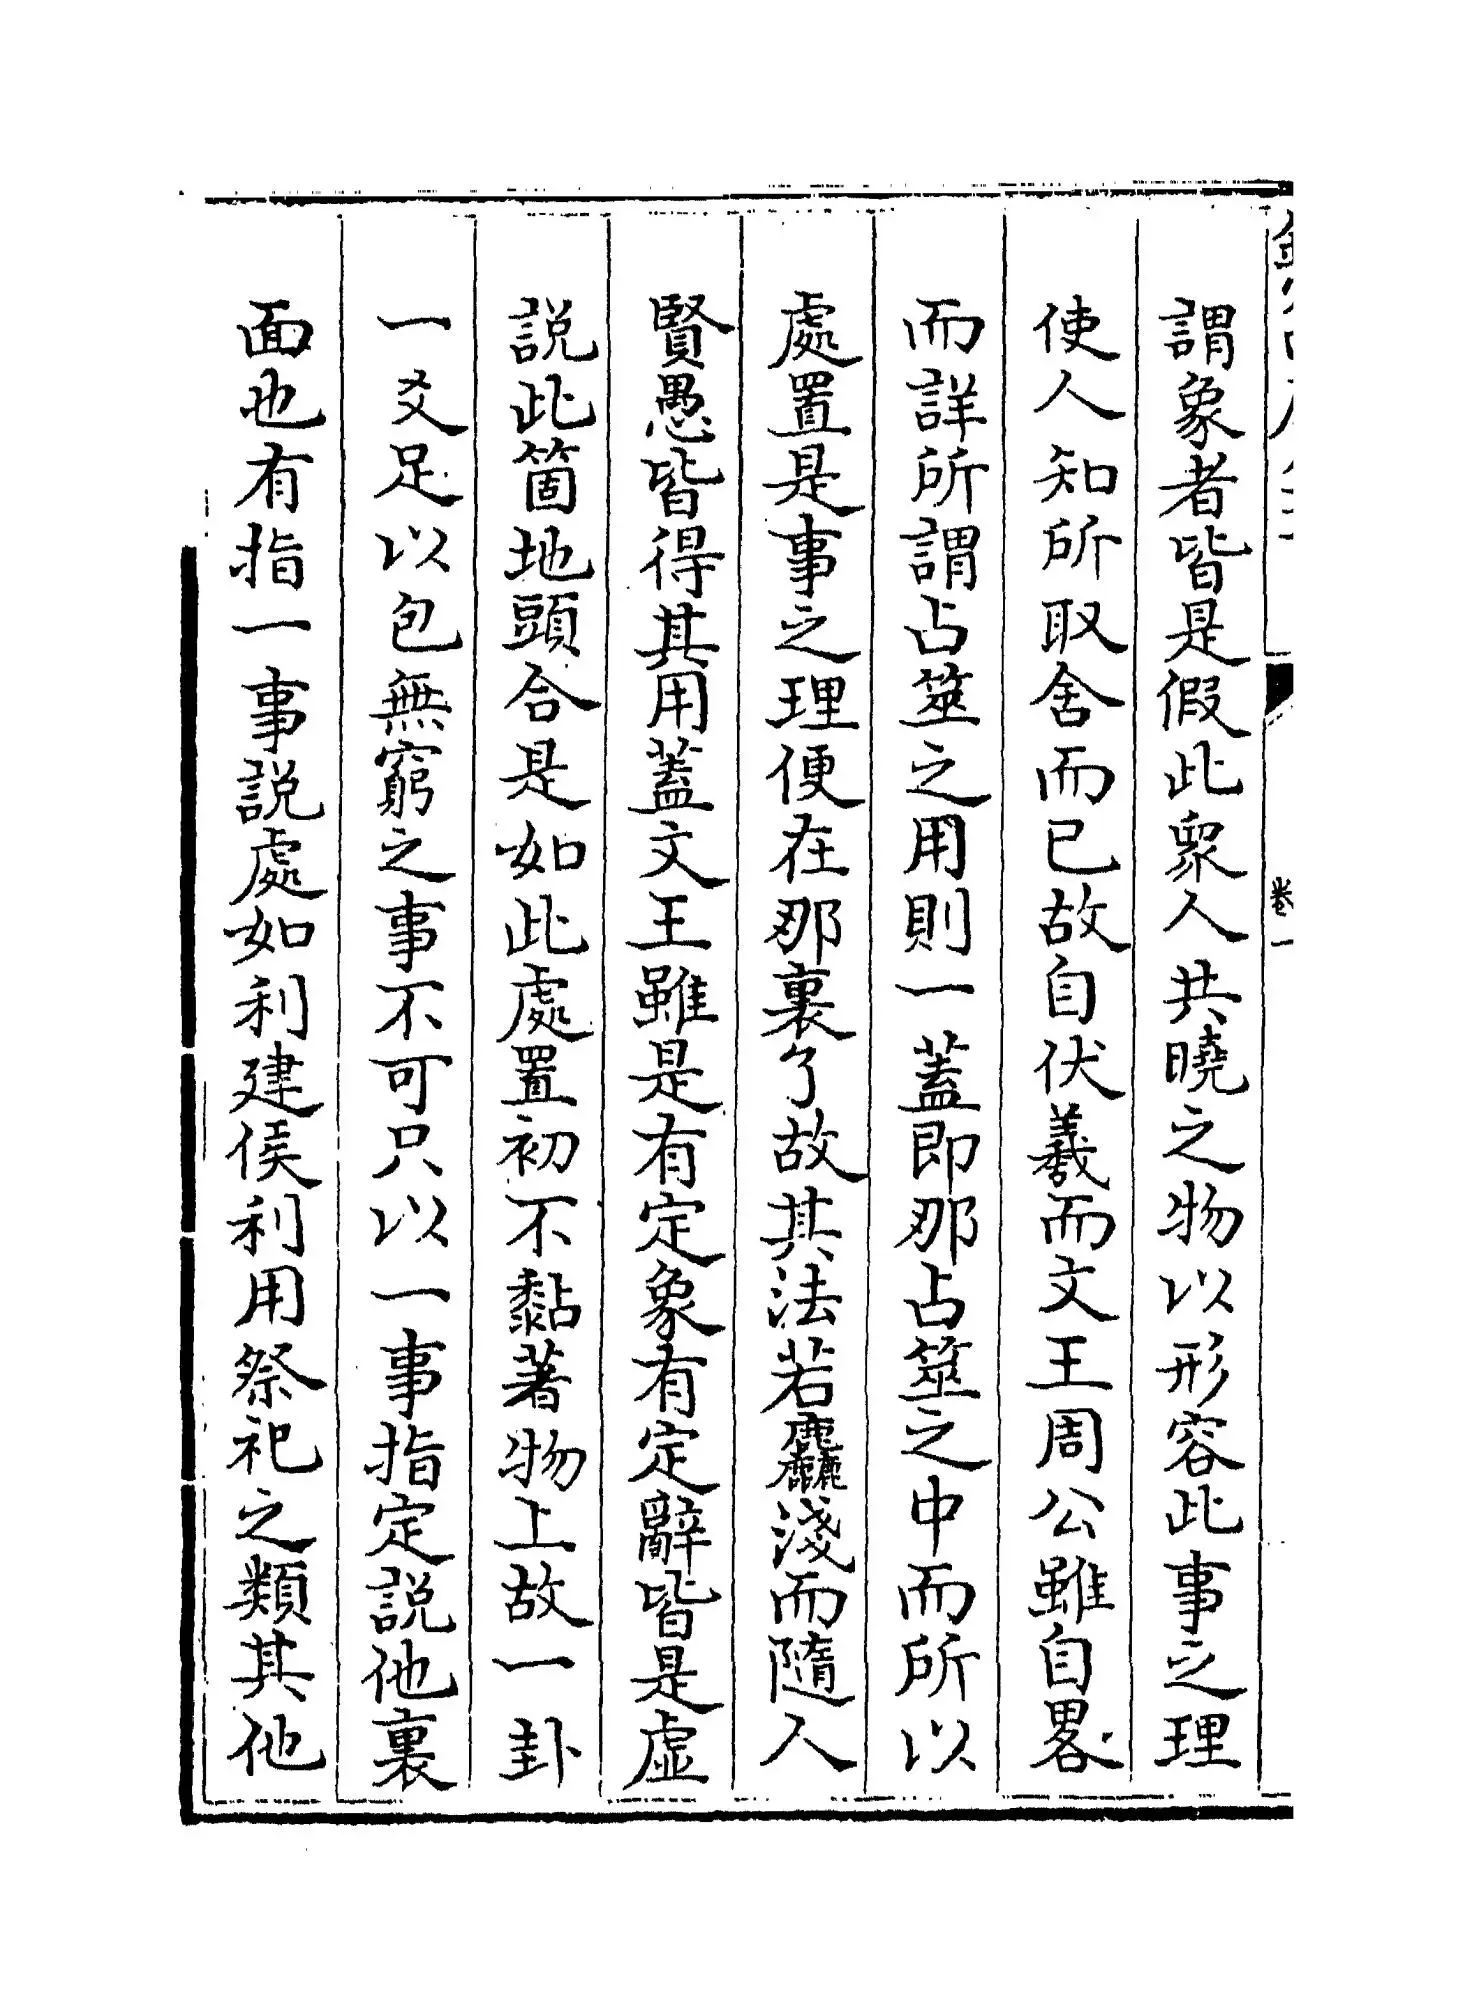 謂象者皆是假此衆人共曉之物以形容此事之理
使人知所取舍而已故自伏羲而文王周公雖自畧
而詳所謂占筮之用則一蓋即那占筮之中而所以
處置是事之理便在那裏了故其法若麤淺而隨人
賢愚皆得其用蓋文王雖是有定象有定辭皆是虚
説此箇地頭合是如此處置初不黏著物上故一卦
一爻足以包無窮之事不可只以一事指定説他裏
面也有指一事説處如利建侯利用祭祀之類其他
卷一